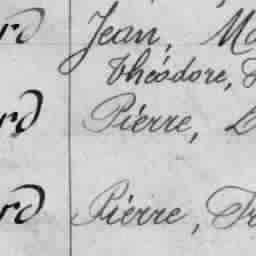 rd Jean, Ma
Théodore,
rd Pierre, L
rd Pierre, Fr